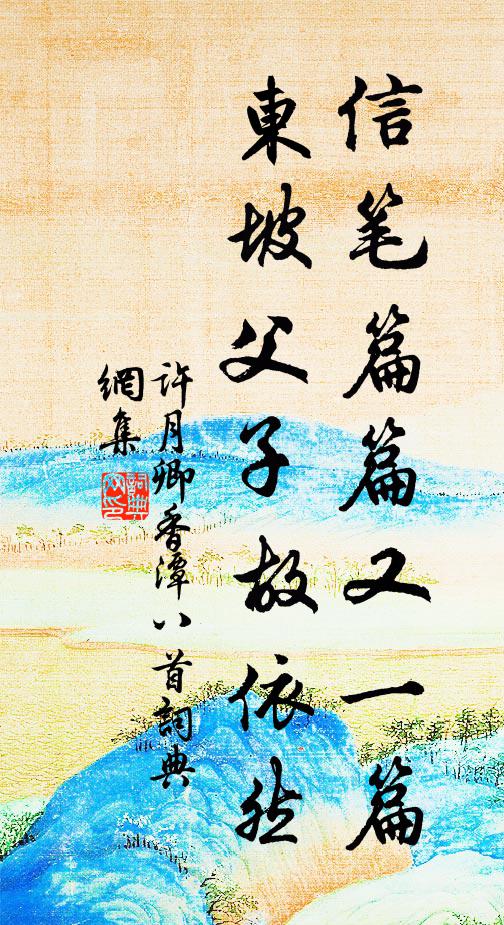 信笔篇篇又一篇
東坡父子故依然
許月卿香潭八首詞典
網集
詞典